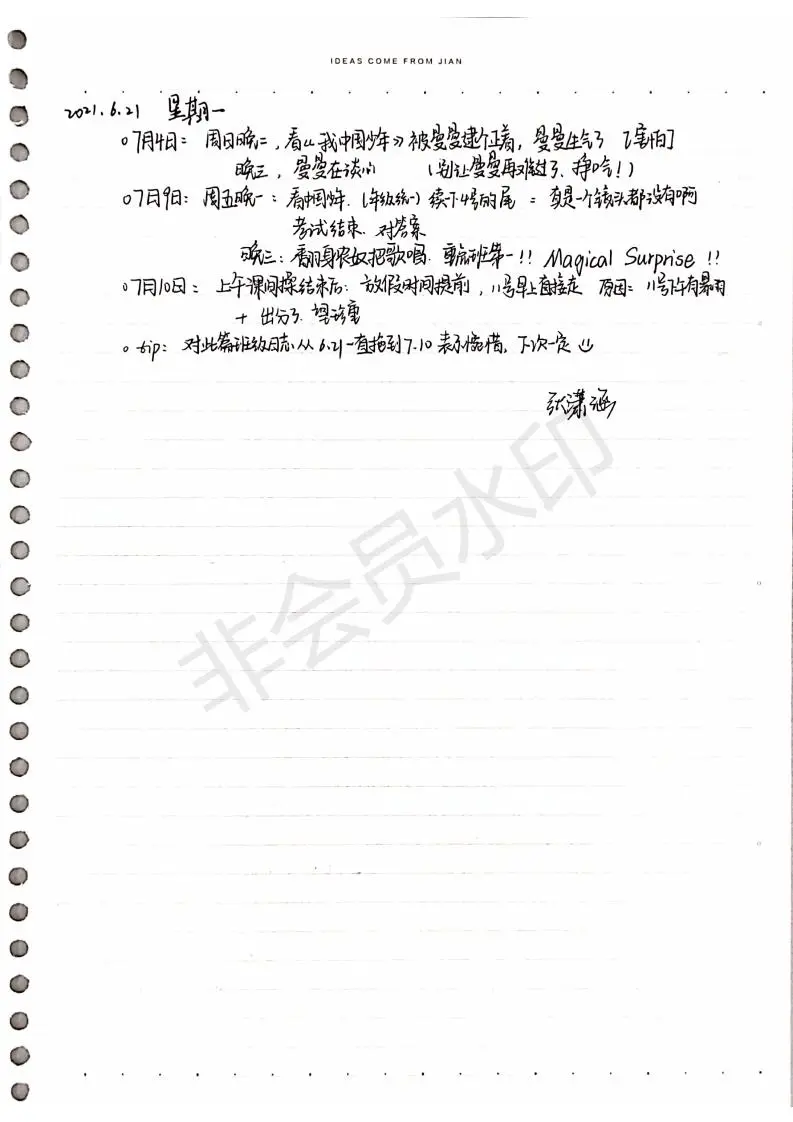 IDEAS COME FROM JIAN
2021.6.21 星期一
○7月4日: 周日晚二,看《我中国少年》被曼曼逮个正着,曼曼生气了 [害怕]
晚三,曼曼在谈心 (别让曼曼再难过了、挣口气!)
○7月9日: 周五晚一: 看中国少年.(年级统一) 续下4号的尾 = 真是一个镜头都没有啊
考试结束.对答案
晚三: 翻身农奴把歌唱. 重点班第一!! Magical Surprise !!
○7月10日: 上午课间操结束后: 放假时间提前,11号早上直接走 原因= 11号下午有暴雨
+ 出分了.望珍重
○ tip: 对此篇班级日志从6.21一直拖到7.10表示惋惜,下次一定
张潇涵
非会员水印